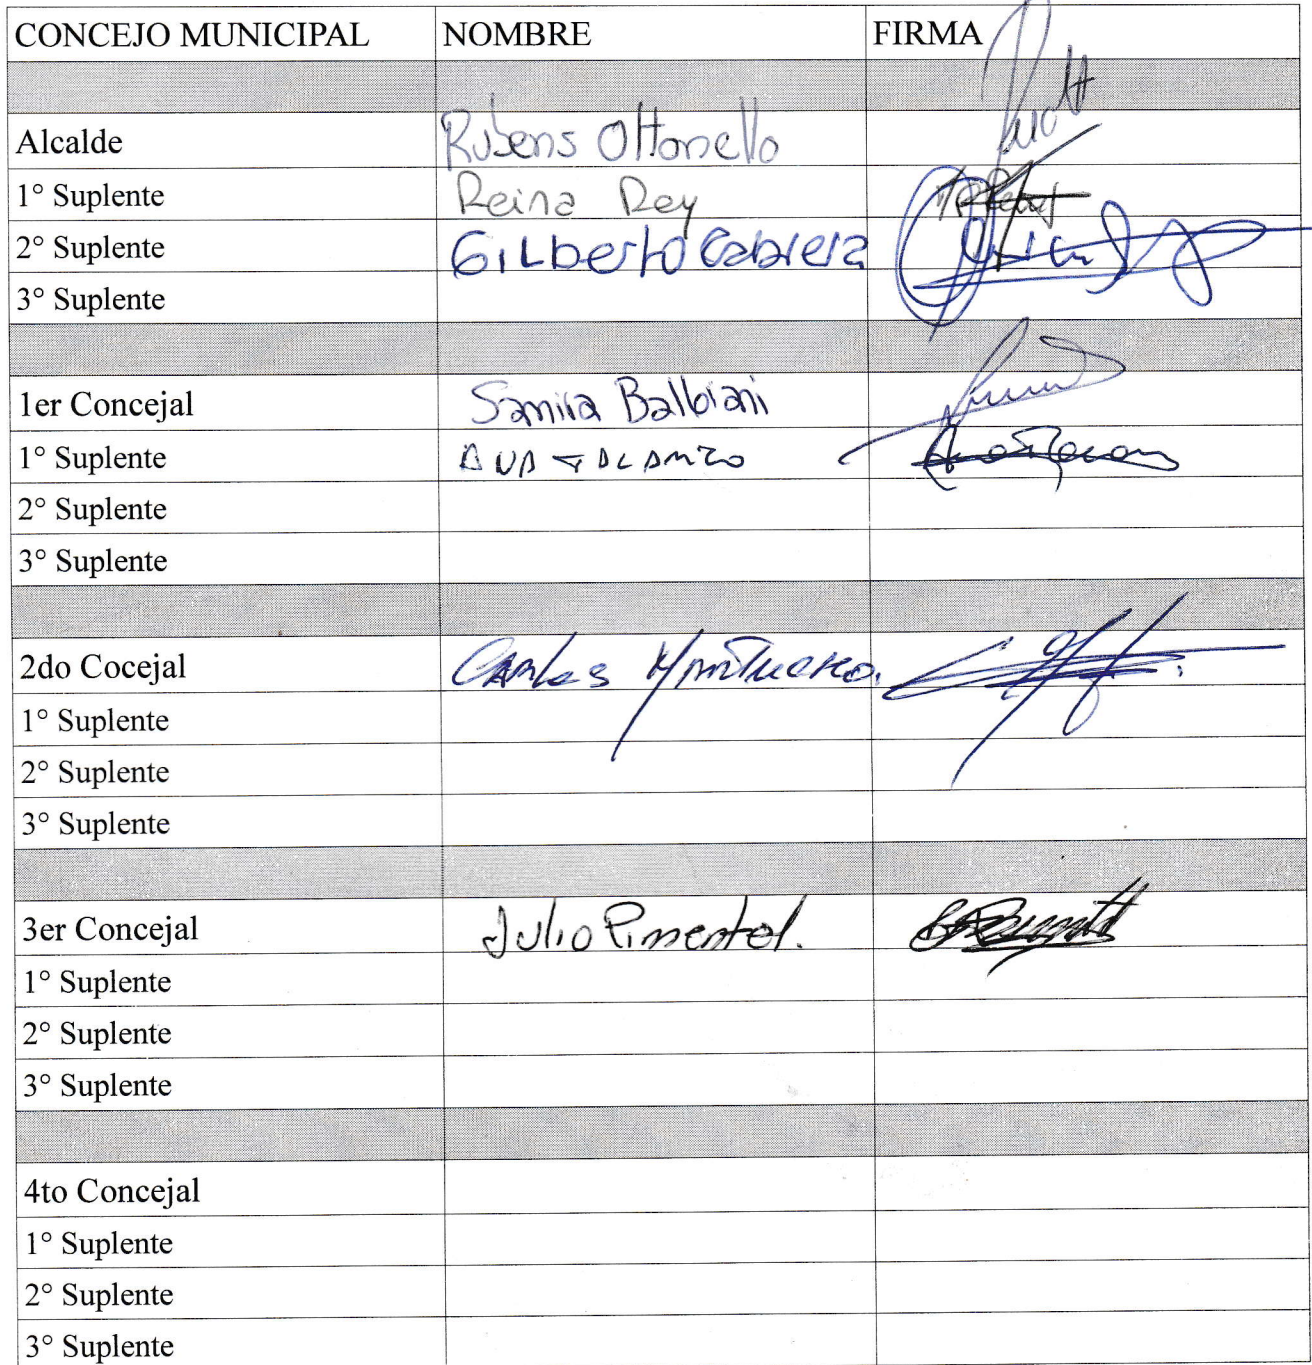 CONCEJO MUNICIPAL NOMBRE FIRMA
Alcalde Rubens Ottonello
1° Suplente Reina Rey
2° Suplente GiLberto Cabrera
3° Suplente
1er Concejal Samira Balbiani
1° Suplente
2° Suplente
3° Suplente
2do Cocejal Carlos
1° Suplente
2° Suplente
3° Suplente
3er Concejal Julio Pimentel.
1° Suplente
2° Suplente
3° Suplente
4to Concejal
1° Suplente
2° Suplente
3° Suplente